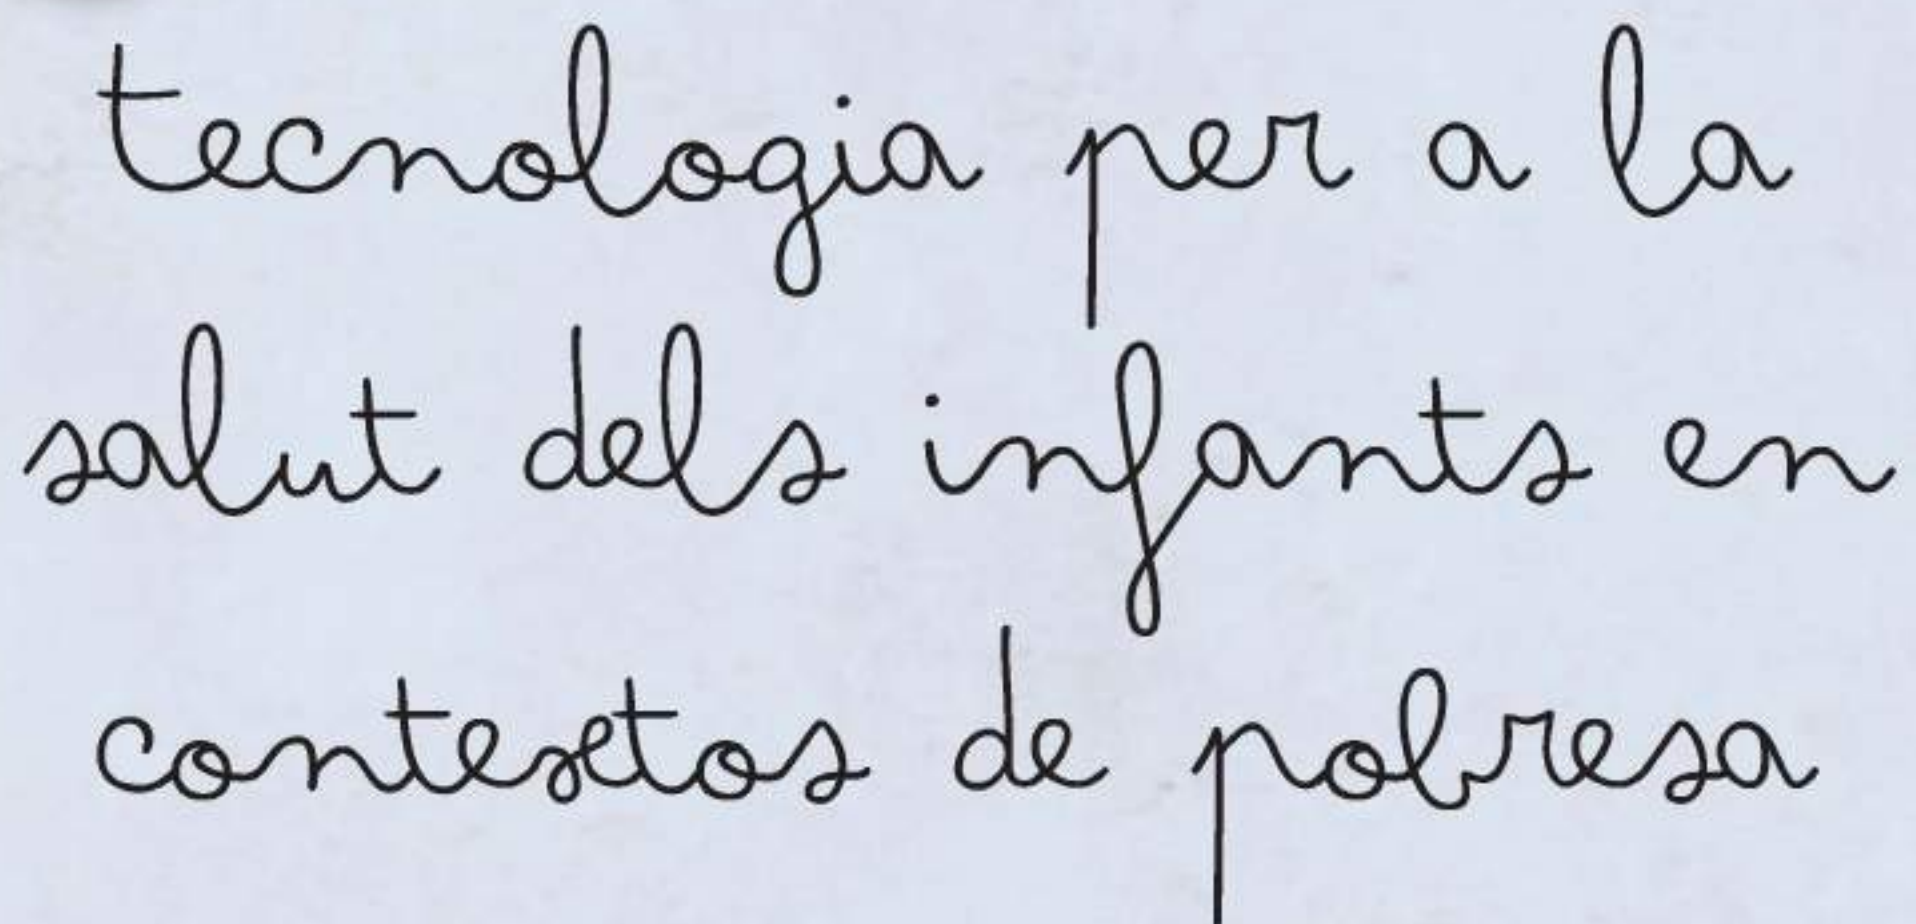 tecnologia per a la
salut dels infants en
contextos de pobresa